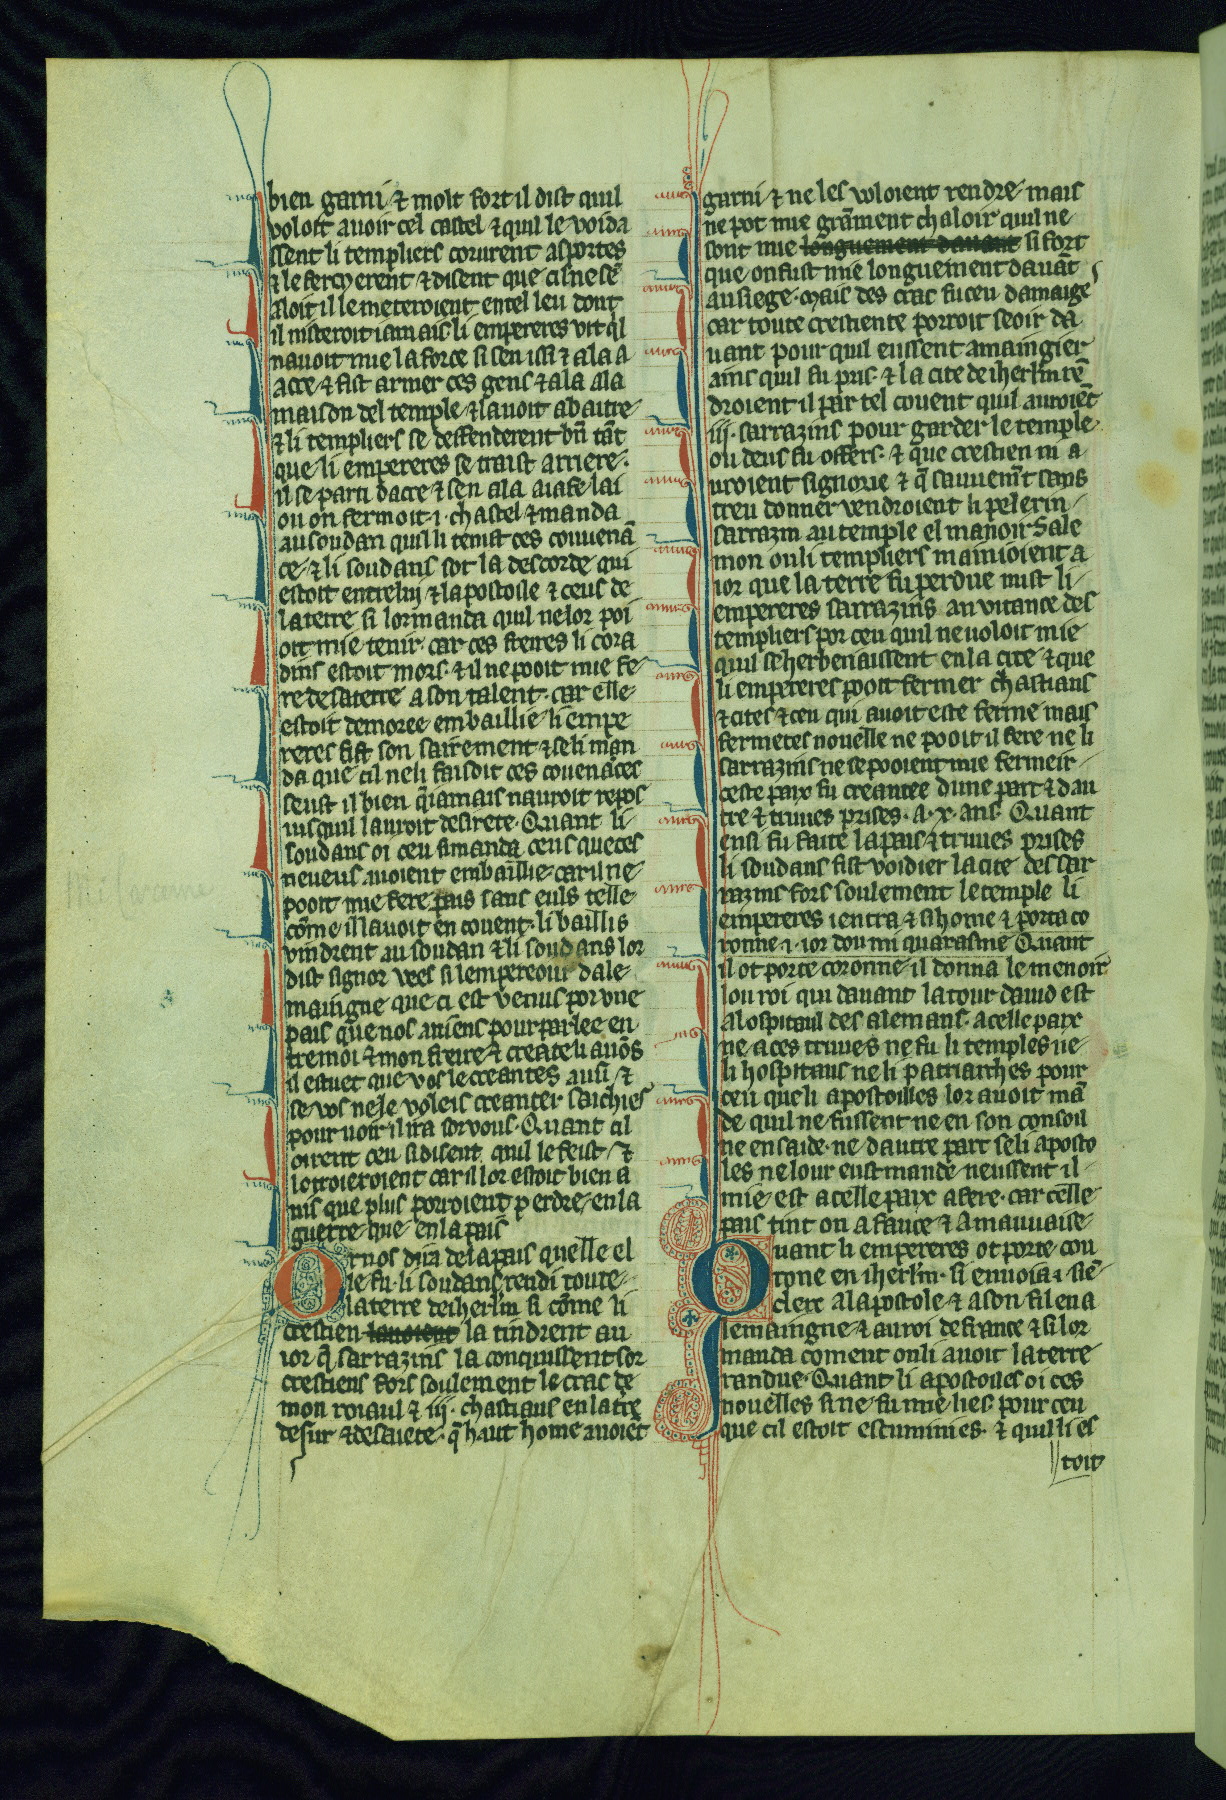 bien garni ⁊ molt fort il dist quil
voloit avoir cel castel ⁊ quil le voida
ssent li templiers corurent as portes
⁊ le fer erent ⁊ disent que cil ne sē
aloit il le meteroient en tel leu dont
il nisteroit iamais li empereres vit ql
navoit mie la force si sen issi ⁊ ala a
acre ⁊ fist armer ces gens ⁊ ala ala
maison del temple ⁊ lavoit abaitre
⁊ li templiers se deffenderent bn̄ tāt
que li empereres se traist arriere
il se parti dacre ⁊ sen ala a iafe lai
ou on fermoit .i. chastel ⁊ manda
au soudan quil li tenist ces couvenā
ce ⁊ li soudans sot la descorde qui
estoit entre lui ⁊ lapostoile ⁊ ceus de
la terre si lor manda quil ne lor poi
oit mie tenir car ces freires li cora
dins estoit mors ⁊ il ne pooit mie fe
re de sa terre a son talent car elle
estoit demoree em baillie li empe
reres fist son sairement ⁊ se li man
da que cil ne li faisoit ces covenāces
seust il bien q̄ iamais nauroit repos
iusquil lauroit desirete Quant li
soudans oi ceu si manda ceus que ces
neveus avoient em baillie car il ne
pooit mie fere pais sans euls telle
cōme il lavoit en covent li baillis
vindrent au soudan ⁊ li soudans lor
dist signor vees si lempereour dale
maingne que ci est venus por une
pais que nos aviens pourparlee en
tre moi ⁊ mon freire ⁊ create li avōs
il estuet que vos le creantes ausi ⁊
se vos ne le voleis creanter saichies
pour voir il ira sor vous Quant cil
oirent ceu si disent quil le feist ⁊
lotroieroient car il lor estoit bien a
vis que plus porroient perdre en la
guerre que en la pais
Or nos dira de la pais quelle el
le fu li soudans rendi toute
la terre de iherl'm si cōme li
crestien lavoient la tindrent au
ior q̄ sarrazins la conquissent sor
crestiens fors soulement le crac de
mon roiaul ⁊ iij. chastiaus en la tre
de sur ⁊ de saiete q̄ haut home avoiēt
garni ⁊ ne les voloient rendre mais
ne pot mie grāment chaloir quil ne
sont mie longuement davant si fort
que on fust mie longuement davāt
au siege mais des crac fu ceu damaige
car toute crestiente porroit seoir da
vant pour quil eussent a maingier
ains quil fu pris ⁊ la cite de iherl'm rē
droient il par tel covent quil auroiēt
iij. sarrazins pour garder le temple
ou deus fu offers ⁊ que crestien ni a
vroient signorie ⁊ q̄ sauvemēt sans
treu donner vendroient li pelerin
sarrazin au temple el manoir Sale
mon ou li templiers mainoient a
ior que la terre fu perdue mist li
empereres sarrazins an vitance des
templiers por ceu quil ne voloit mie
quil se herbeniaissent en la cite ⁊ que
li empereres poit fermer chastians
⁊ cites ⁊ ceu qui avoit este ferme mais
fermetes novelle ne pooit il fere ne li
sarrazins ne se pooient mie fermeir
ceste paix fu creantee dune part ⁊ dau
tre ⁊ trives prises .a .x. ans Quant
ensi fu faite la pais ⁊ truves prises
li soudans fist voidier la cite des sar
razins fors soulement le temple li
empereres i entra ⁊ si home ⁊ porta co
ronne .i. ior dou mi quarasme Quant
il ot porte coronne il donna le menoir
lou roi qui davant la tour david est
al ospitaul des alemans a celle paix
ne a ces truves ne fu li temples ne
li hospitaus ne li patriarches pour
ceu que li apostoilles lor avoit mā
de quil ne fussent ne en son consoil
ne en saide ne dautre part se li aposto
les ne lour eust mande neussent il
mie est a celle paix a fere car celle
pais tint on a fauce ⁊ a mauvaise
Quant li empereres ot porte cou
rone en iherl'm si envoia .i. siē
clerc a lapostole ⁊ a son fil en a
lemaingne ⁊ au roi de france ⁊ si lor
manda coment on li avoit la terre
randue Quant li apostoles oi ces
novelles si ne fu mie lies pour ceu
que cil estoit escumines ⁊ quil li es
toit